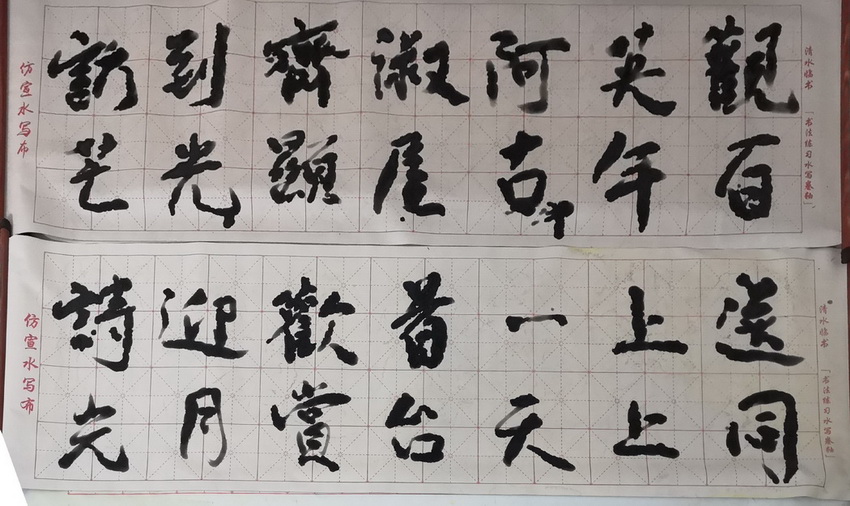 清水临书
「书法练习水写卷轴」
觀英阿淑齊到訪
百年古屋顯光芒
仿宣水写布
清水临书
「书法练习水写卷轴」
送上一首歡迎詩
同上天台賞月光
仿宣水写布